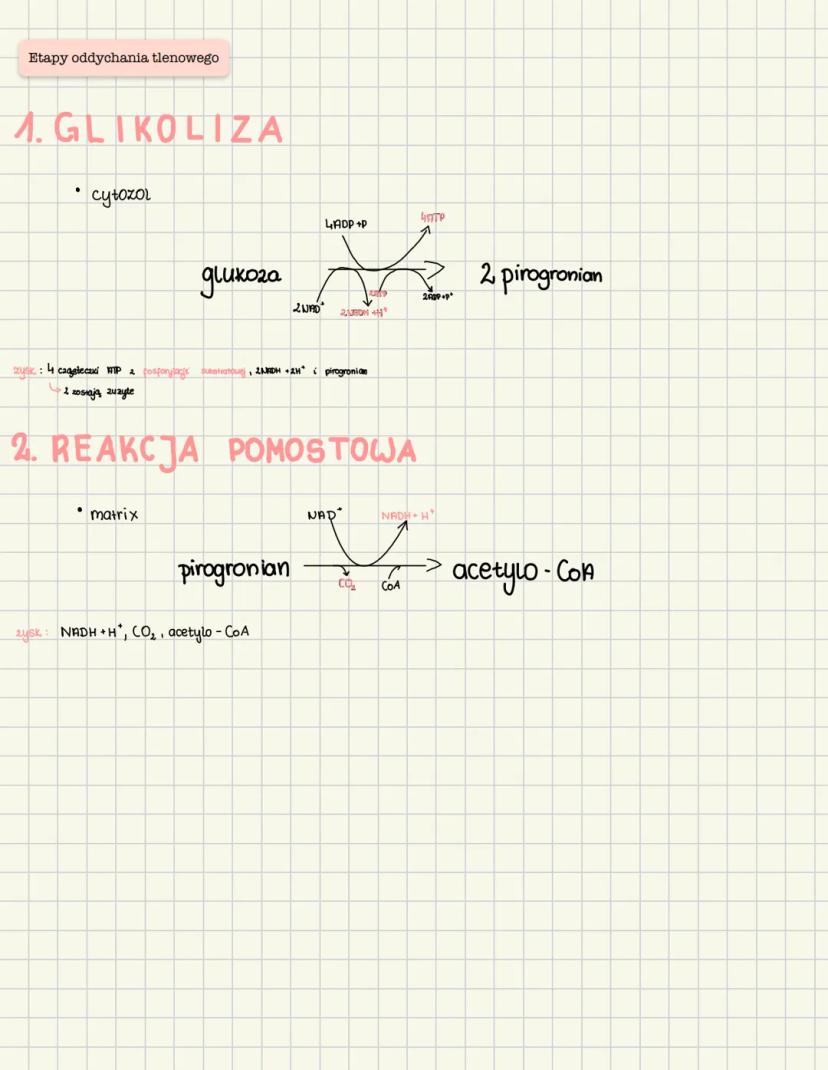 Etapy oddychania tlenowego
1. GLIKOLIZA
• cytozol
4ADP+P 4ATP
glukoza 2 pirogronian
2NAD⁺ 2NADH+H⁺ 2ATP 2ADP+P⁺
zysk: 4 cząsteczki ATP z fosforylacji substratowej, 2NADH+2H⁺ i pirogronian
↳ 2 zostają zużyte
2. REAKCJA POMOSTOWA
• matrix
NAD⁺ NADH+H⁺
pirogronian acetylo-CoA
CO₂ CoA
zysk: NADH+H⁺, CO₂, acetylo-CoA